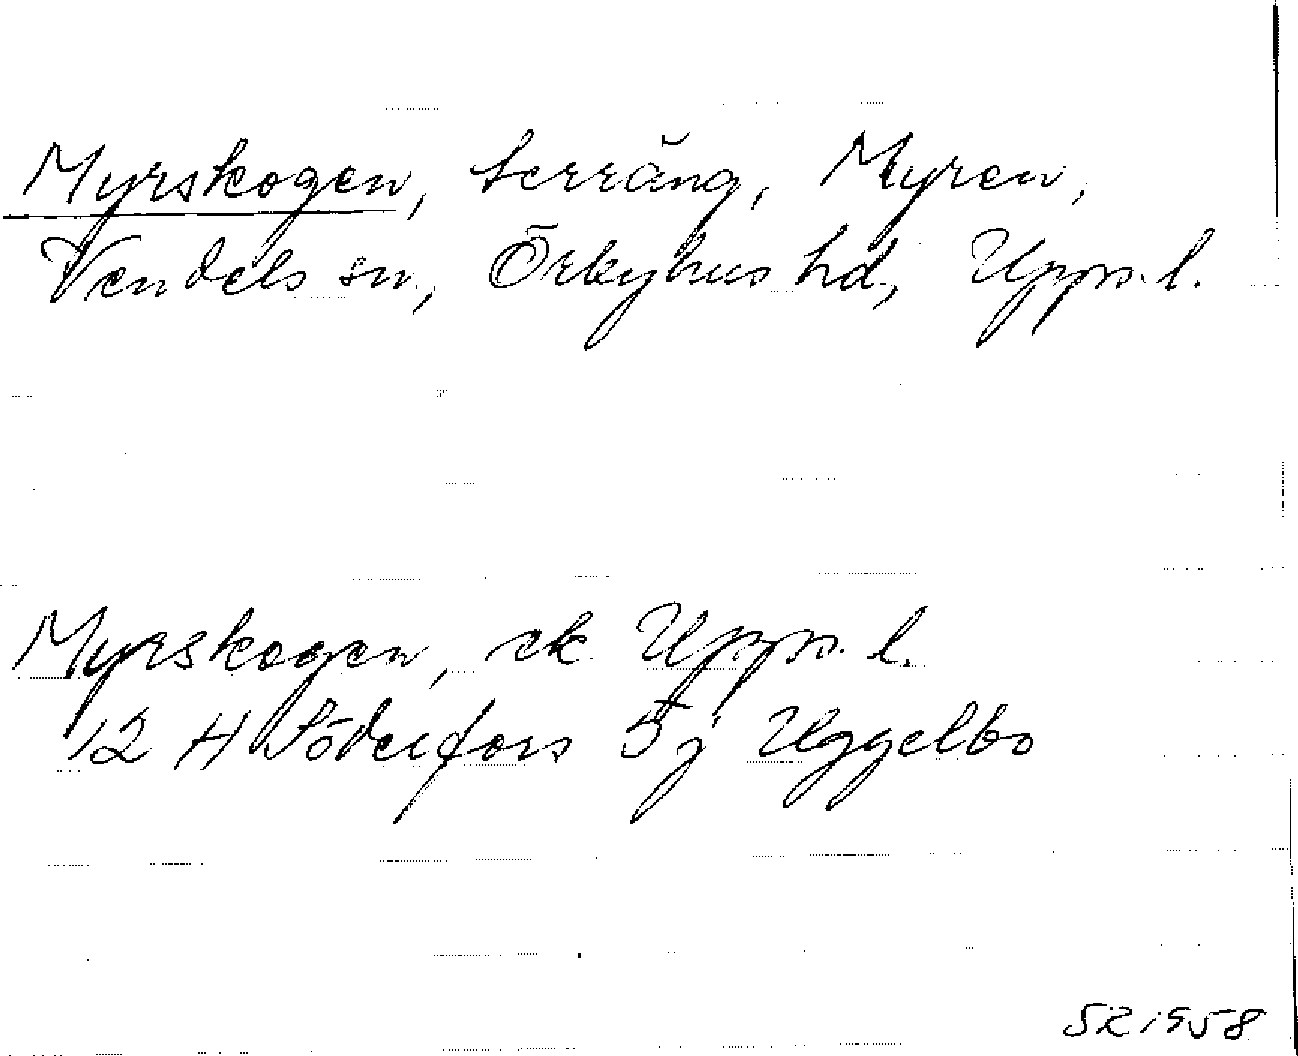 Myrskogen, terräng, Myren,
Vendels sn, Örbyhus hd, Upps. l.
Myrskogen, ek Upps. l.
12 H Söderfors 5j Uggelbo
SR 1958